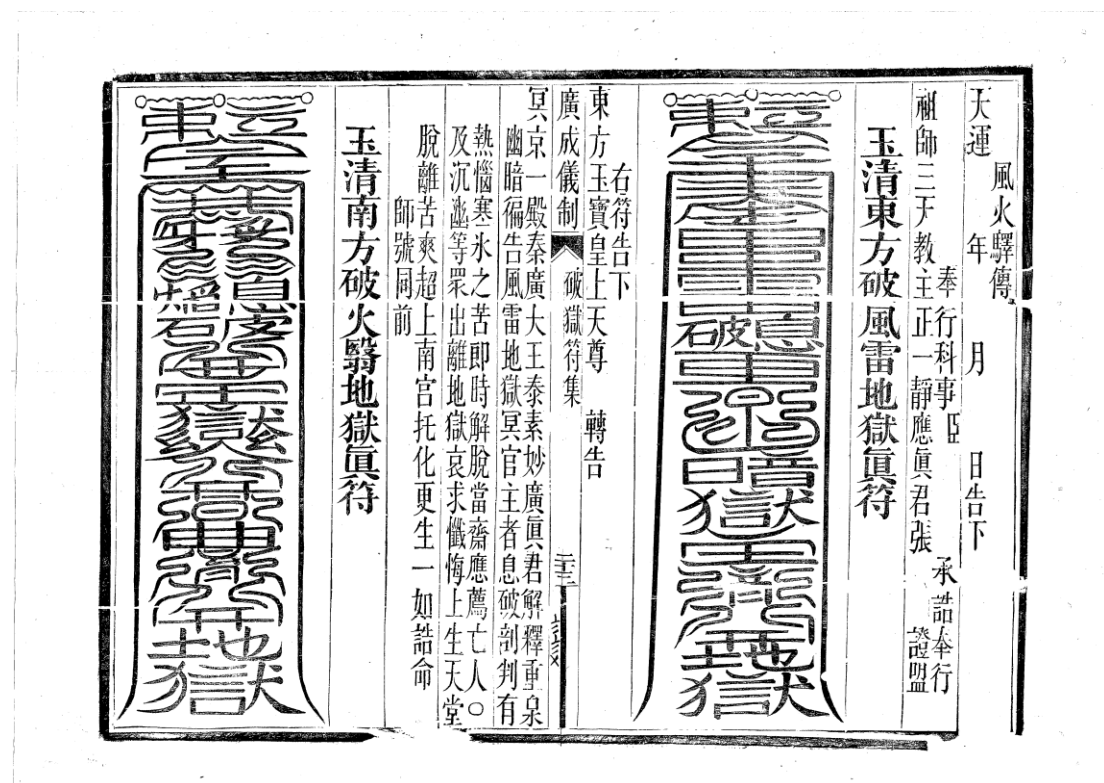 風火驛傳
天運 年 月 日告下
奉行科事臣 承誥奉行
祖師三天教主正一靜應眞君張 證盟
玉清東方破風雷地獄眞符
右符告下
東方玉寶皇上天尊 轉告
廣成儀制 破獄符集 二十三
冥京一殿秦廣大王泰素妙廣眞君解釋重泉
幽暗徧告風雷地獄冥官主者息破剖判有
熱惱寒氷之苦即時解脫當齋應薦亡人〇
及沉幽等眾出離地獄哀求懺悔上生天堂
脫離苦爽超上南宮托化更生一如誥命
師號同前
玉清南方破火翳地獄眞符